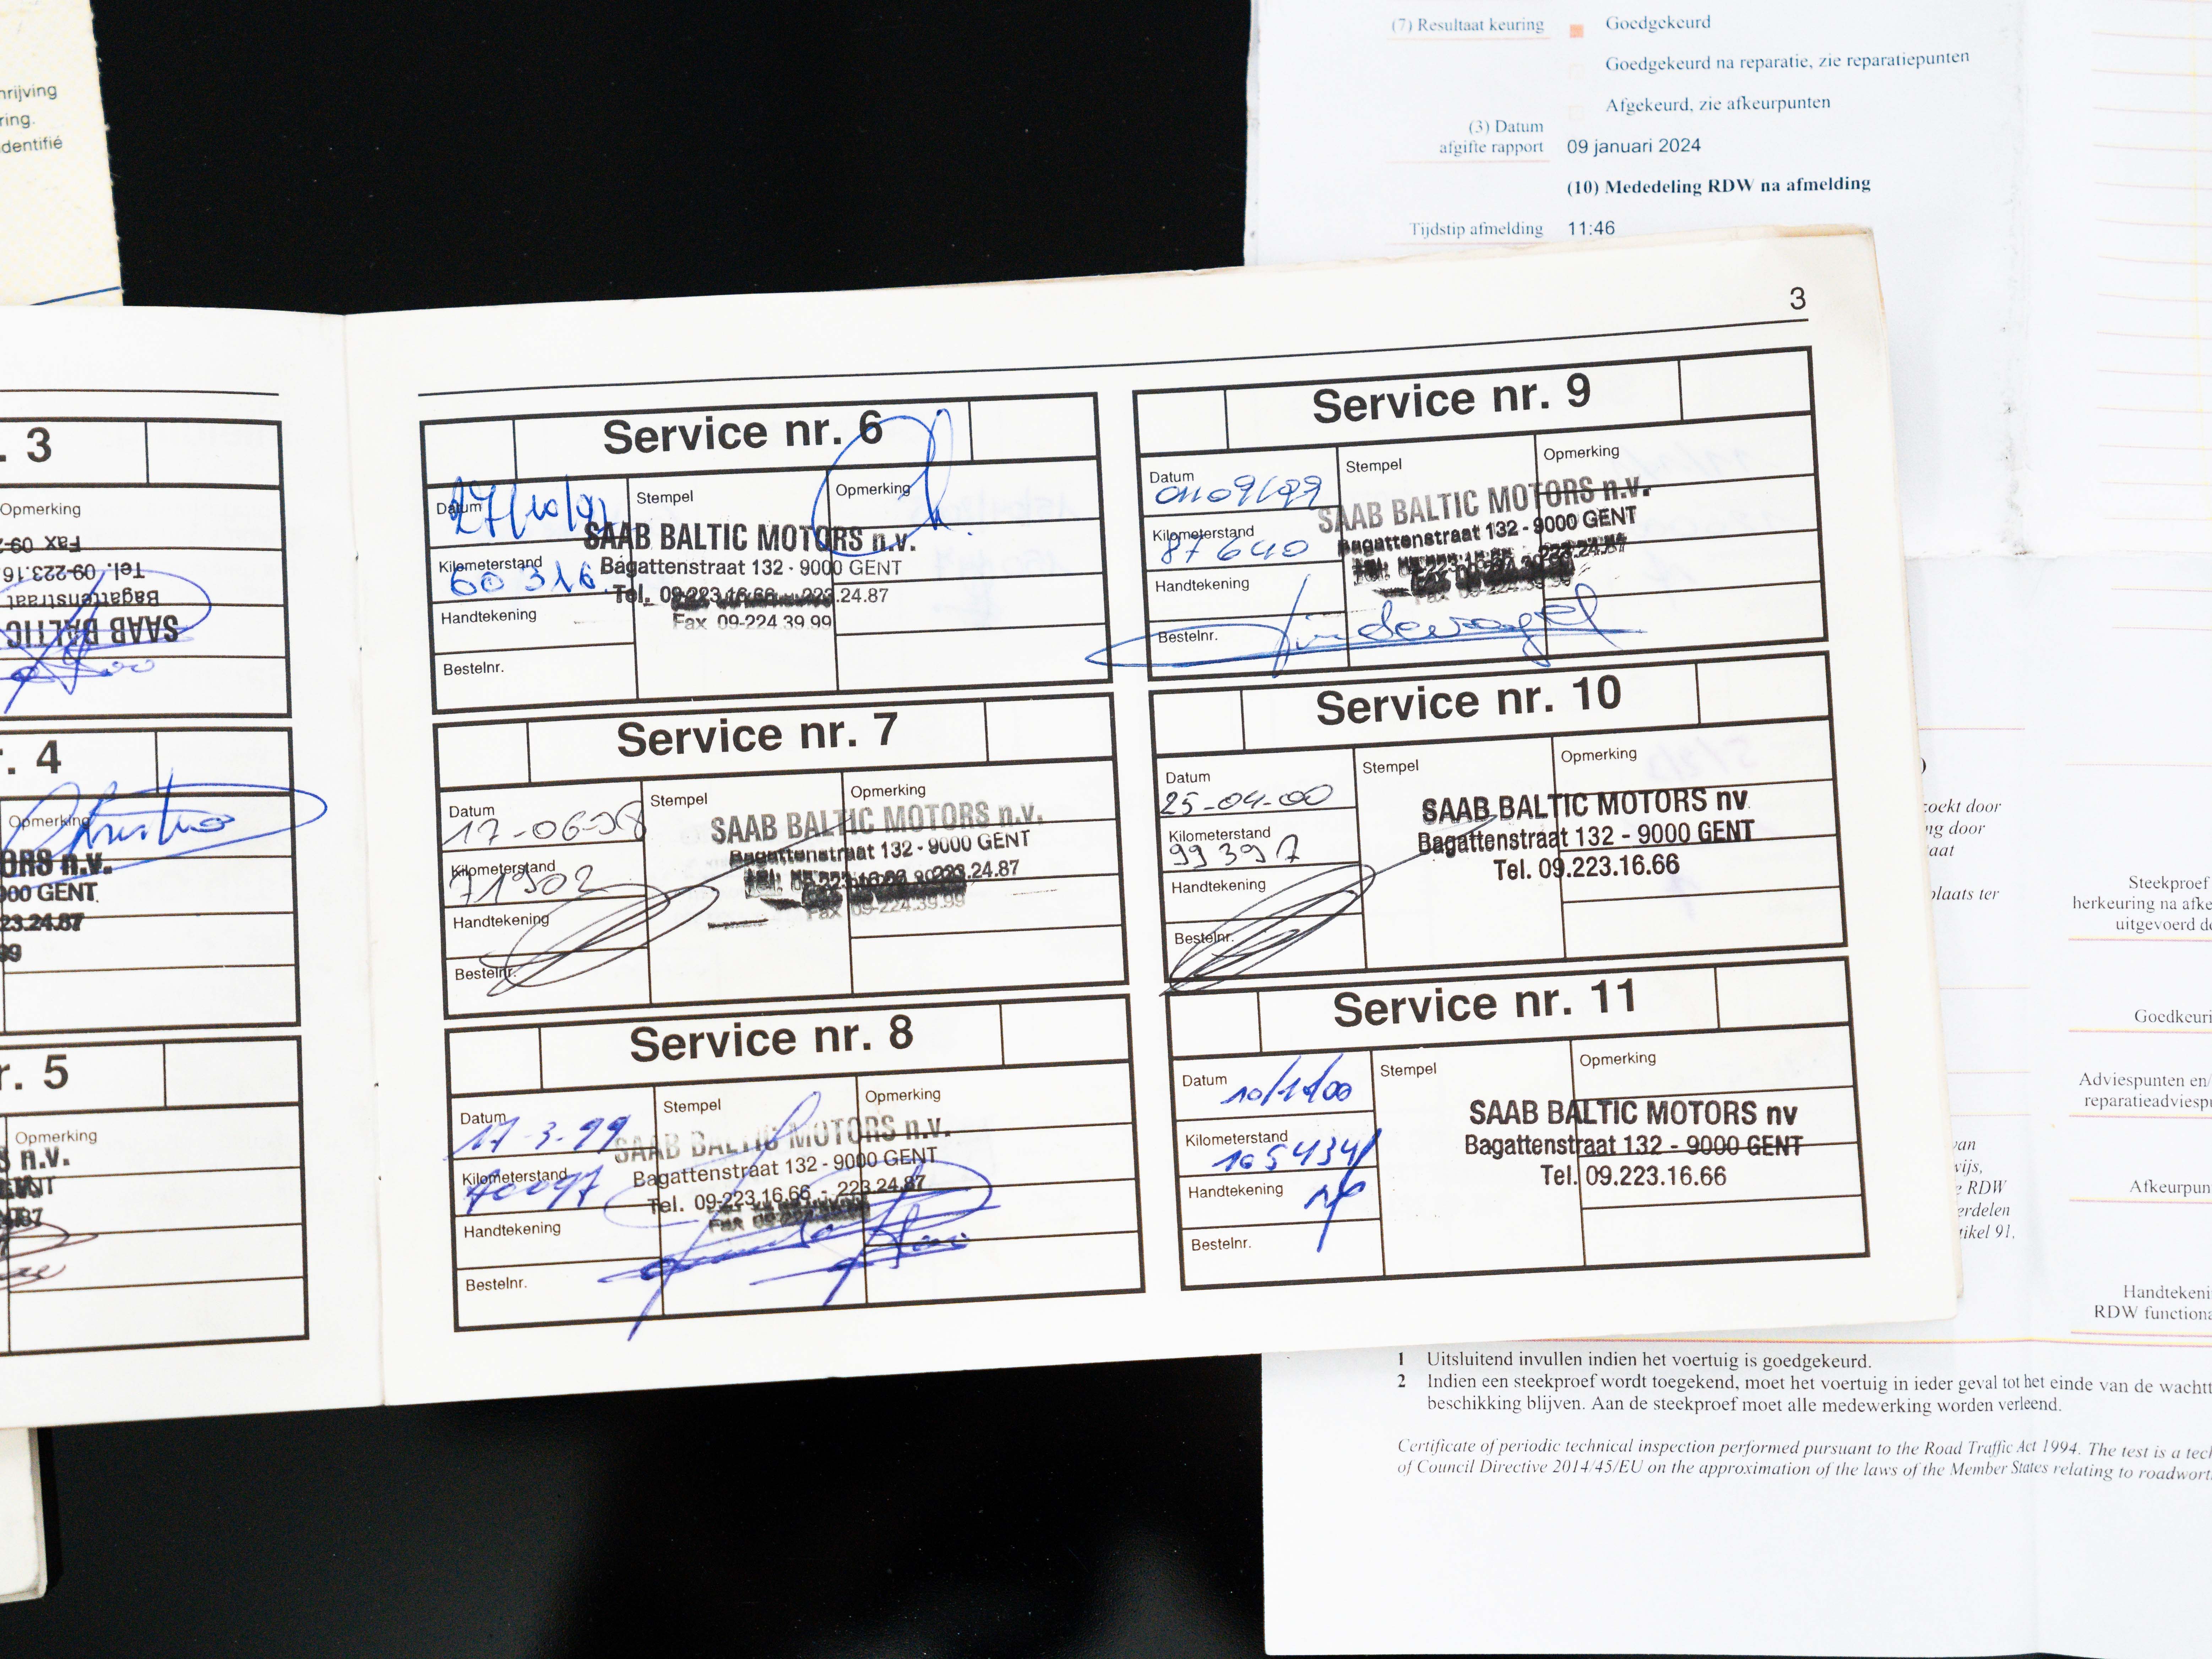 hrijving
ring.
dentifié
(7) Resultaat keuring
Goedgekeurd
Goedgekeurd na reparatie, zie reparatiepunten
Afgekeurd, zie afkeurpunten
(3) Datum
afgifte rapport
09 januari 2024
(10) Mededeling RDW na afmelding
Tijdstip afmelding 11:46
3
. 3
Opmerking
Tel. 09-223.16
Bagattenstraat
SAAB BALTIC
. 4
Opmerking
ORS n.v.
000 GENT
23.24.87
99
r. 5
Opmerking
S n.v.
Service nr. 6
Datum
27/10/97
Stempel
Opmerking
SAAB BALTIC MOTORS n.v.
Kilometerstand
60 316
Bagattenstraat 132 - 9000 GENT
Tel. 09-223.16.66 223.24.87
Fax 09-224 39 99
Handtekening
Bestelnr.
Service nr. 7
Datum
17-06-98
Stempel
Opmerking
SAAB BALTIC MOTORS n.v.
Bagattenstraat 132 - 9000 GENT
Kilometerstand
71902
223.24.87
Fax 09-224.39.99
Handtekening
Bestelnr.
Service nr. 8
Datum
17-3-99
Stempel
Opmerking
SAAB BALTIC MOTORS n.v.
Bagattenstraat 132 - 9000 GENT
Kilometerstand
Tel. 09-223.16.66 - 223.24.87
Handtekening
Bestelnr.
Service nr. 9
Datum
01/09/99
Stempel
Opmerking
SAAB BALTIC MOTORS n.v.
Bagattenstraat 132 - 9000 GENT
Kilometerstand
87640
223.24.87
Handtekening
Bestelnr.
Service nr. 10
Datum
25-04-00
Stempel
Opmerking
SAAB BALTIC MOTORS nv
Bagattenstraat 132 - 9000 GENT
Tel. 09.223.16.66
Kilometerstand
99397
Handtekening
Bestelnr.
Service nr. 11
Datum
Stempel
Opmerking
SAAB BALTIC MOTORS nv
Bagattenstraat 132 - 9000 GENT
Tel. 09.223.16.66
Kilometerstand
Handtekening
Bestelnr.
zoekt door
ng door
aat
plaats ter
van
wijs,
e RDW
erdelen
tikel 91,
Steekproef
herkeuring na afke
uitgevoerd do
Goedkeuri
Adviespunten en/
reparatieadviespu
Afkeurpun
Handtekeni
RDW functiona
1 Uitsluitend invullen indien het voertuig is goedgekeurd.
2 Indien een steekproef wordt toegekend, moet het voertuig in ieder geval tot het einde van de wachtt
beschikking blijven. Aan de steekproef moet alle medewerking worden verleend.
Certificate of periodic technical inspection performed pursuant to the Road Traffic Act 1994. The test is a tech
of Council Directive 2014/45/EU on the approximation of the laws of the Member States relating to roadwort